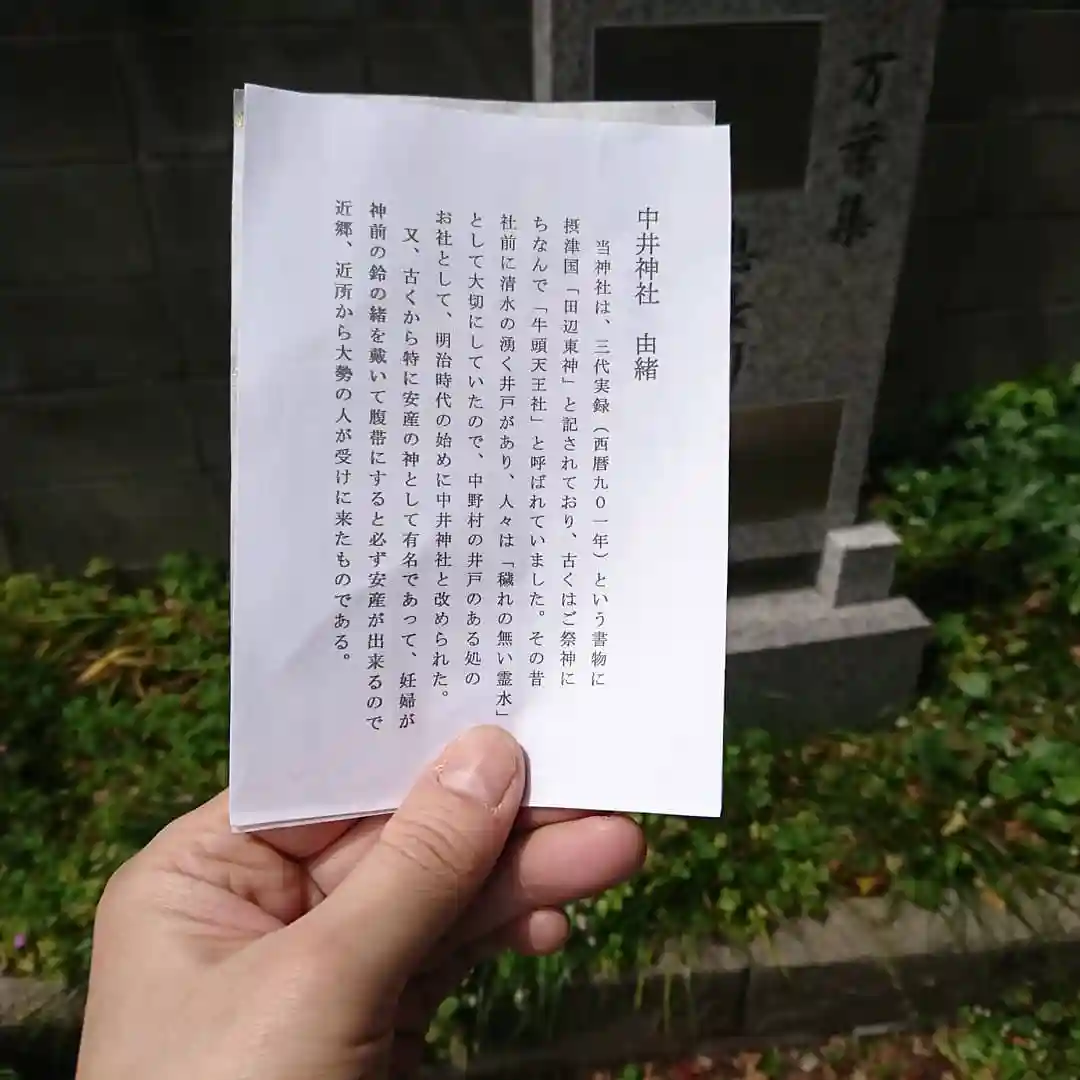 中井神社 由緒
当神社は、三代実録（西暦九０一年）という書物に
摂津国「田辺東神」と記されており、古くはご祭神に
ちなんで「牛頭天王社」と呼ばれていました。その昔
社前に清水の湧く井戸があり、人々は「穢れの無い霊水」
として大切にしていたので、中野村の井戸のある処の
お社として、明治時代の始めに中井神社と改められた。
又、古くから特に安産の神として有名であって、妊婦が
神前の鈴の緒を戴いて腹帯にすると必ず安産が出来るので
近郷、近所から大勢の人が受けに来たものである。
万葉集